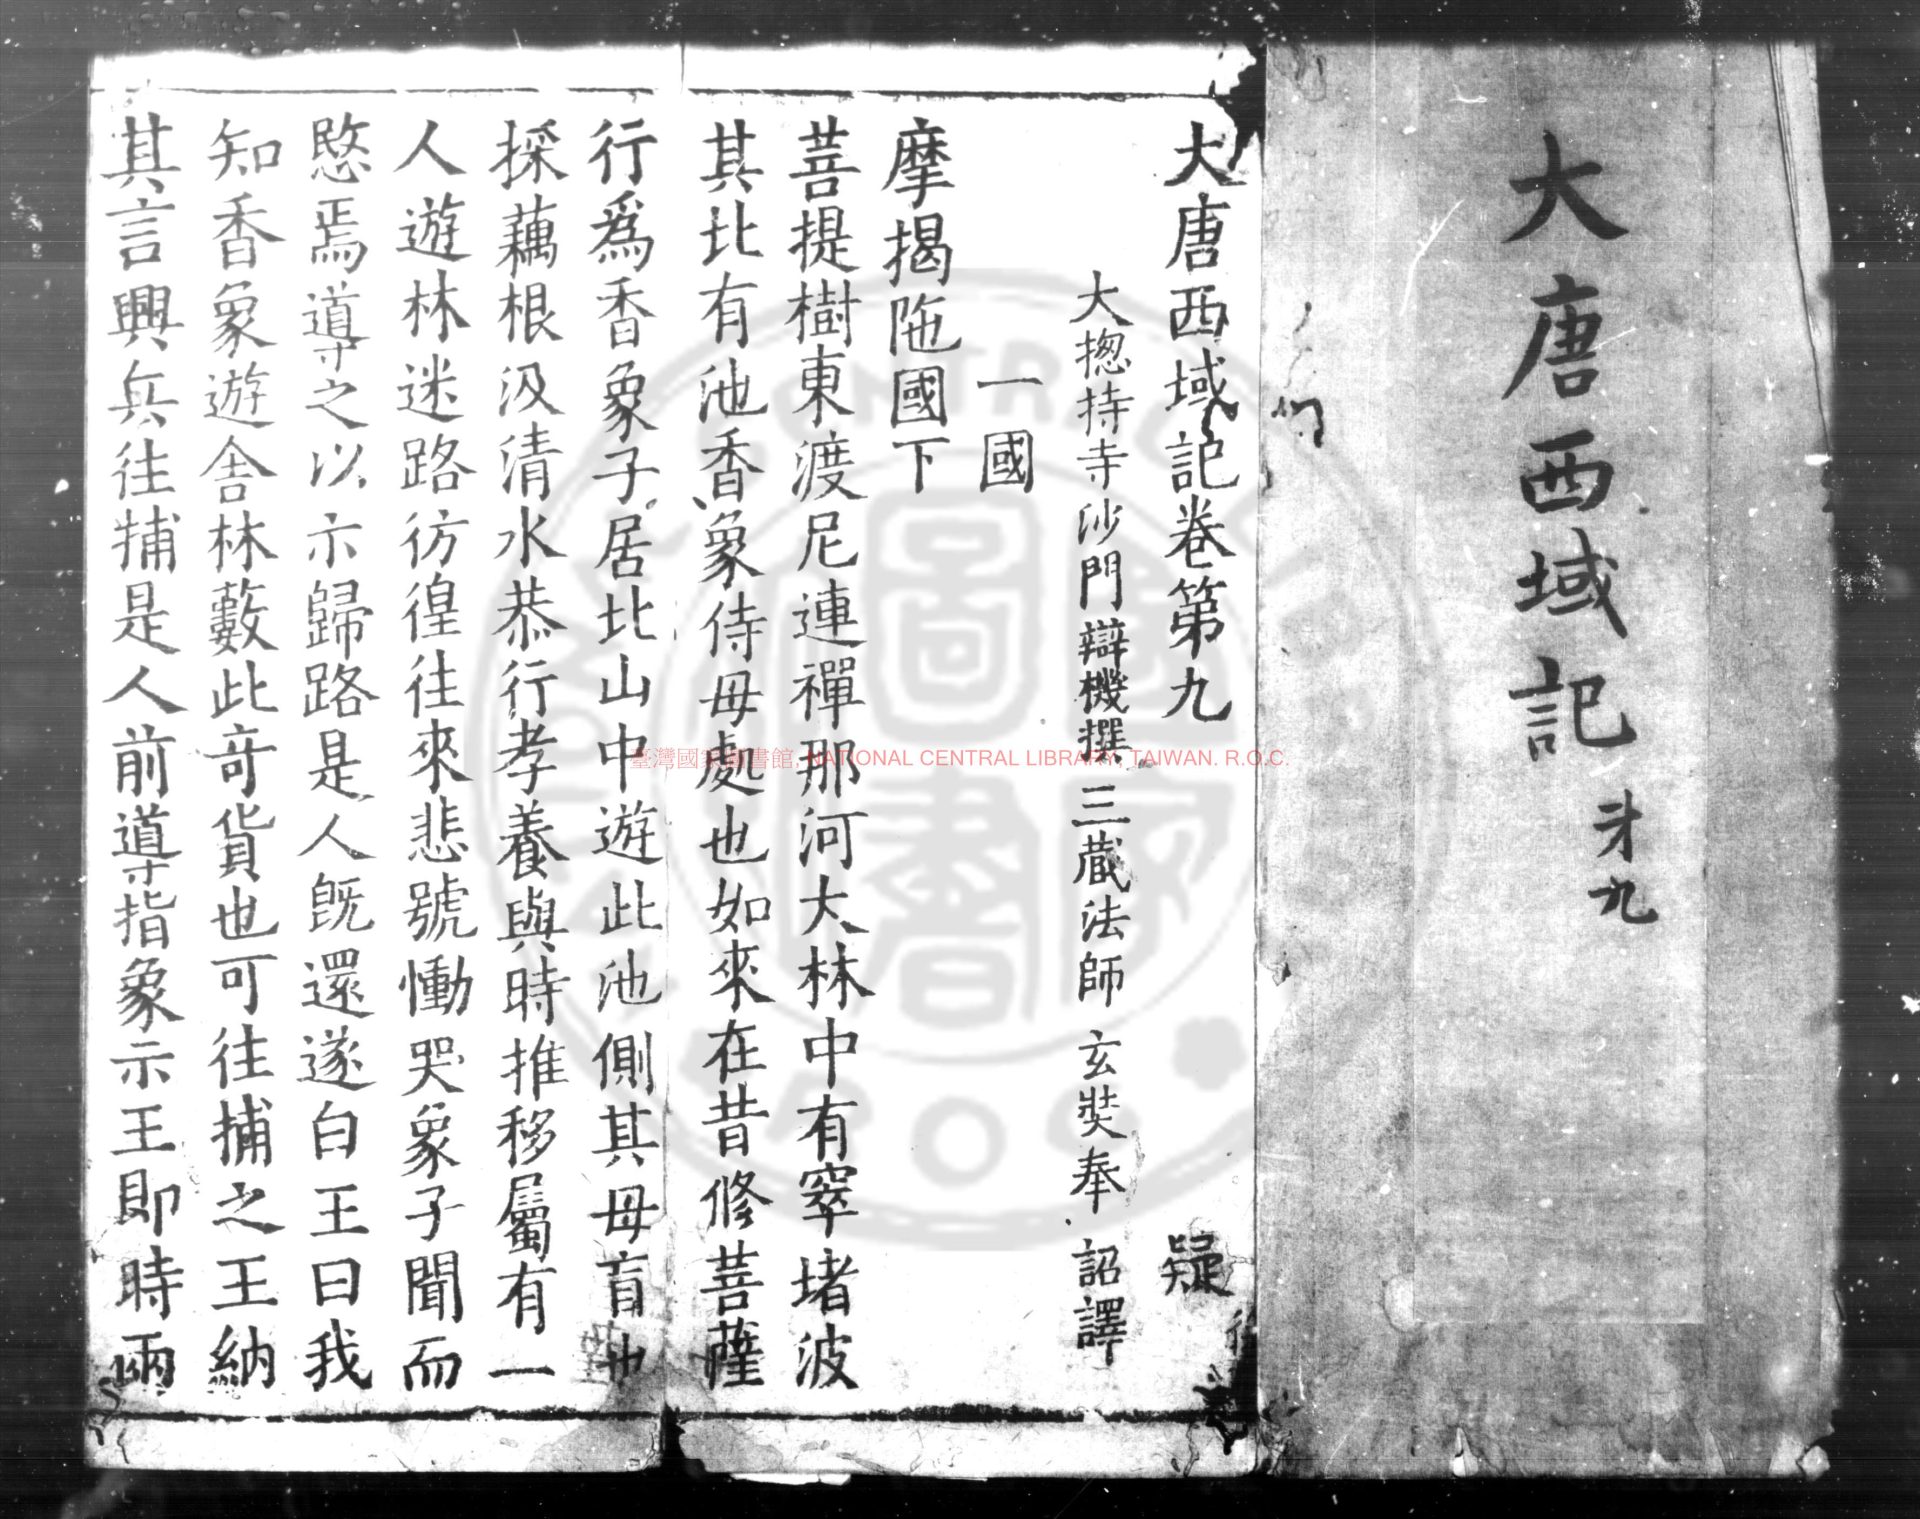 大唐西域記
才九
大唐西域記卷第九 疑
大揔持寺沙門辯機撰 三藏法師 玄奘奉 詔譯
一國
摩揭陁國下
菩提樹東渡尼連禪那河大林中有窣堵波
其北有池香象侍母處也如來在昔修菩薩
行爲香象子居北山中遊此池側其母盲也
採藕根汲清水恭行孝養與時推移屬有一
人遊林迷路彷徨往來悲號慟哭象子聞而
愍焉導之以示歸路是人既還遂白王曰我
知香象遊舍林藪此奇貨也可往捕之王納
其言興兵往捕是人前導指象示王即時兩
臺灣國家圖書館, NATIONAL CENTRAL LIBRARY, TAIWAN. R.O.C.